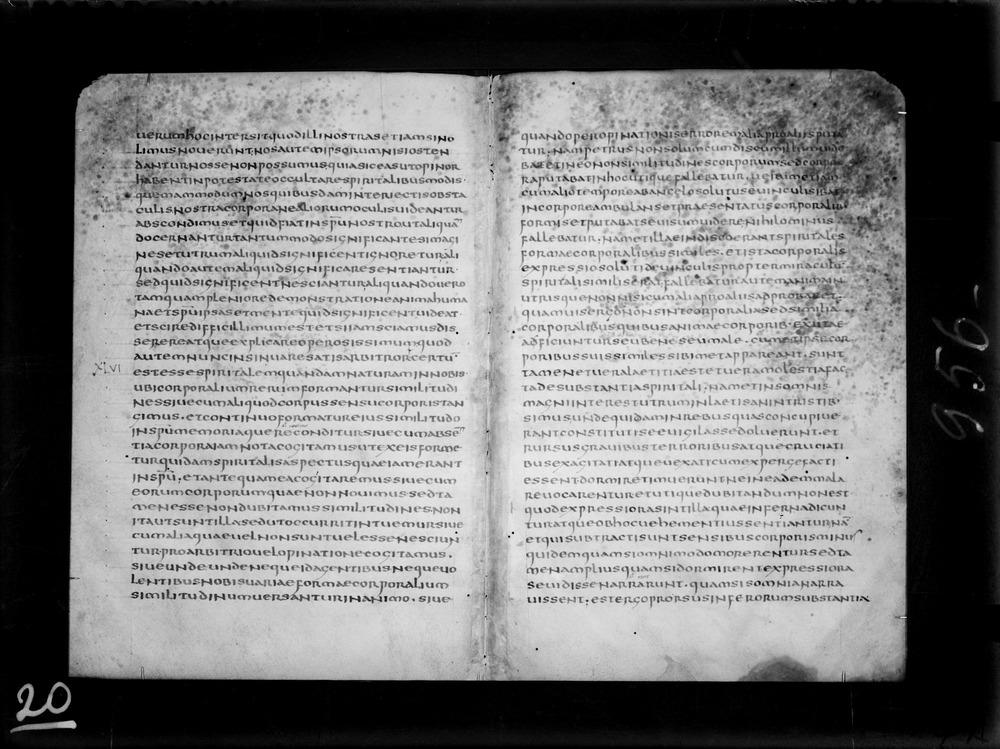 UERUMHOCINTERSITQUODILLINOSTRASETIAMSINO
LIMUSNOUERUNT·NOSAUTEMIPSORUMNISIOSTEN
DANTURNOSSENONPOSSUMUSQUIASICEASUTOPINOR
HABENTINPOTESTATEOCCULTARESPIRITALIBUSMODIS·
QUEMAMMODUMNOSQUIBUSDAMINTERIECTISOBSTA
CULISNOSTRACORPORANEALIORUMOCULISUIDEANTUR
ABSCONDIMUSETQUIDFIATINSPŪNOSTROUTALIQUĀ
DOCERNANTURTANTUMMODOSIGNIFICANTESIMAGI
NESETUTRUMALIQUIDSIGNIFICENTIGNORETURALI
QUANDOAUTEMALIQUIDSIGNIFICARESENTIANTUR·
SEDQUIDSIGNIFICENTNESCIANTURALIQUANDOUERO
TAMQUAMPLENIOREDEMONSTRATIONEANIMAHUMA
NAETSPŪIPSASETMENTEQUIDSIGNIFICENTUIDEAT·
ETSCIREDIFFICILLIMUMESTETSIIAMSCIAMUSDIS
SEREREATQUEEXPLICAREOPEROSISSIMUMQUOD
AUTEMNUNCINSINUARESATISARBITRORCERTU·
XLVI ESTESSESPIRITALEMQUANDAMNATURAMINNOBIS
UBICORPORALIUMRERUMFORMANTURSIMILITUDI
NESSIUECUMALIQUODCORPUSSENSUCORPORISTAN
CIMUS·ETCONTINUOFORMATUREIUSSIMILITUDO
INSPŪMEMORIAQUERECONDITURSIUECUMABSEN̄
TIACORPORAIAMNOTACOGITAMUSUTEXEISFORME
TURQUIDAMSPIRITALISASPECTUSQUAEIAMERANT
INSPŪ·ETANTEQUAMEACOGITAREMUSSIUECUM
EORUMCORPORUMQUAENONNOUIMUSSEDTA
MENESSENONDUBITAMUSSIMILITUDINESNON
ITAUTSUNTILLASEDUTOCCURRITINTUEMURSIUE
CUMALIAQUAEUELNONSUNTUELESSENESCIUN
TURPROARBITRIOUELOPINATIONECOGITAMUS·
SIUEUNDEUNDENEQUEIDAGENTIBUSNEQUEUO
LENTIBUSNOBISUARIAEFORMAECORPORALIUM
SIMILITUDINUMUERSANTURINANIMO·SIUE
QUANDOPEROPINATIONISERROREMALIAPROALIISPUTA
TUR·NAMPETRUSNONSOLUMCUMDISCUMILLUMUIDO
INCORPOREAMBULANSETPRAESENTATUSCORPORALIB·
FORMISETPUTABATSEUISUMUIDERENIHILOMINUS
FALLEBATUR·NAMETILLAEINDISCOERANTSPIRITALES
FORMAECORPORALIBUSSIMILES·ETISTACORPORALIS
EXPRESSIOSOLUTIDEUINCULISPROPTERMIRACULU·
SPIRITALISIMILISERAT·FALLEBATURAUTEMANIMAIN
UTRISQUENONNISICUMALIAPROALIISADPROBARET·
QUAMUISERGONONSINTCORPORALIASEDSIMILIA
CORPORALIBUSQUIBUSANIMAECORPORIB·EXUTAE
ADFICIUNTURSEUBENESEUMALE·CUMETIPSECOR
PORIBUSSUISSIMILESSIBIMETAPPAREANT·SUNT
TAMENETUERALAETITIAESTETUERAMOLESTIAFAC
TADESUBSTANTIASPIRITALI·NAMETINSOMNIS
MAGNIINTERESTUTRUMINLAETISANINTRISTIB·
SIMUSUNDEQUIDAMINREBUSQUASCONCUPIUE
RANTCONSTITUTISEEUIGILASSEDOLUERUNT·ET
RURSUSGRAUIBUSTERRORIBUSATQUECRUCIATI
BUSEXAGITATIATQUEUEXATICUMEXPERGEFACTI
ESSENTDORMIRETIMUERUNTNEINEADEMMALA
REUOCARENTURETUTIQUEDUBITANDUMNONEST
QUODEXPRESSIORASINTILLAQUAEINFERNADICUN
TURATQUEOBHOCUEHEMENTIUSSENTIANTURNĀ
ETQUISUBTRACTISUNTSENSIBUSCORPORISMINUS
QUIDEMQUAMSIOMNIMODOMORERENTURSEDTA
MENAMPLIUSQUAMSIDORMIRENTEXPRESSIORA
SEUIDISSENARRARUNT·QUAMSISOMNIANARRA
UISSENT·ESTERGOPRORSUSINFERORUMSUBSTANTIA
20
956-